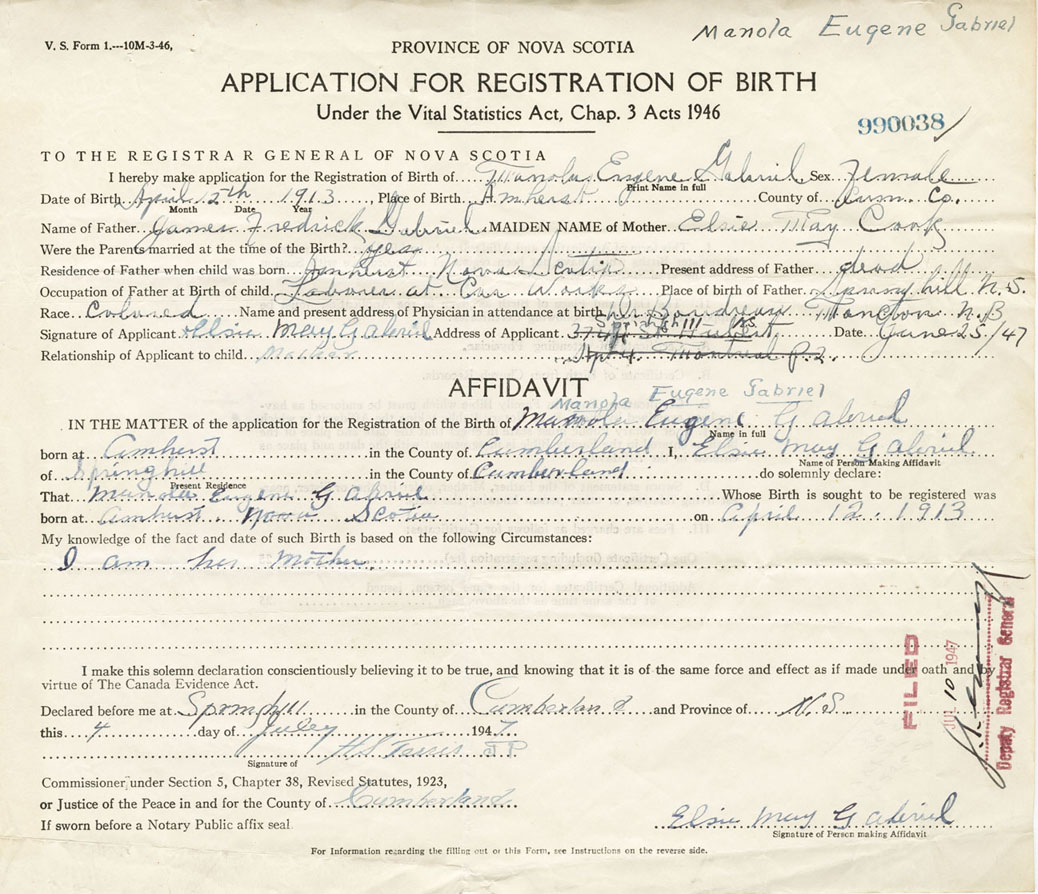 Manola Eugene Gabriel
V. S. Form 1.---10M-3-46,
PROVINCE OF NOVA SCOTIA
APPLICATION FOR REGISTRATION OF BIRTH
Under the Vital Statistics Act, Chap. 3 Acts 1946
990038
TO THE REGISTRAR GENERAL OF NOVA SCOTIA
I hereby make application for the Registration of Birth of Manola Eugene Gabriel Sex Female
Print Name in full
Date of Birth April 12th 1913 Place of Birth Amherst County of Cum. Co.
Month Date Year
Name of Father James Fredrick Gabriel MAIDEN NAME of Mother Elsie May Cook
Were the Parents married at the time of the Birth? yes
Residence of Father when child was born Amherst Nova Scotia Present address of Father dead
Occupation of Father at Birth of child Laborer at Car Works Place of birth of Father hill N.S.
Race Colured Name and present address of Physician in attendance at birth Dr. Boudreau Moncton N.B
Signature of Applicant Elsie May Gabriel Address of Applicant Springhill N.S. Date June 25/47
Relationship of Applicant to child Mother Apt 4 Montreal P.Q.
AFFIDAVIT
Manola Eugene Gabriel
IN THE MATTER of the application for the Registration of the Birth of Manola Eugene Gabriel
Name in full
born at Amherst in the County of Cumberland I, Elsie May Gabriel
Name of Person Making Affidavit
of Springhill in the County of Cumberland do solemnly declare:
Present Residence
That Manola Eugene Gabriel Whose Birth is sought to be registered was
born at Amherst Nova Scotia on April 12. 1913
My knowledge of the fact and date of such Birth is based on the following Circumstances:
I am her Mother
I make this solemn declaration conscientiously believing it to be true, and knowing that it is of the same force and effect as if made under oath and by
virtue of The Canada Evidence Act.
Declared before me at Springhill in the County of Cumberland and Province of N.S.
this 4 day of July 1947
JP
Signature of
Commissioner under Section 5, Chapter 38, Revised Statutes, 1923,
or Justice of the Peace in and for the County of Cumberland
If sworn before a Notary Public affix seal.
Elsie May Gabriel
Signature of Person making Affidavit
For Information regarding the filling out of this Form, see Instructions on the reverse side.
FILED
JUL 10 1947
Deputy Registrar General